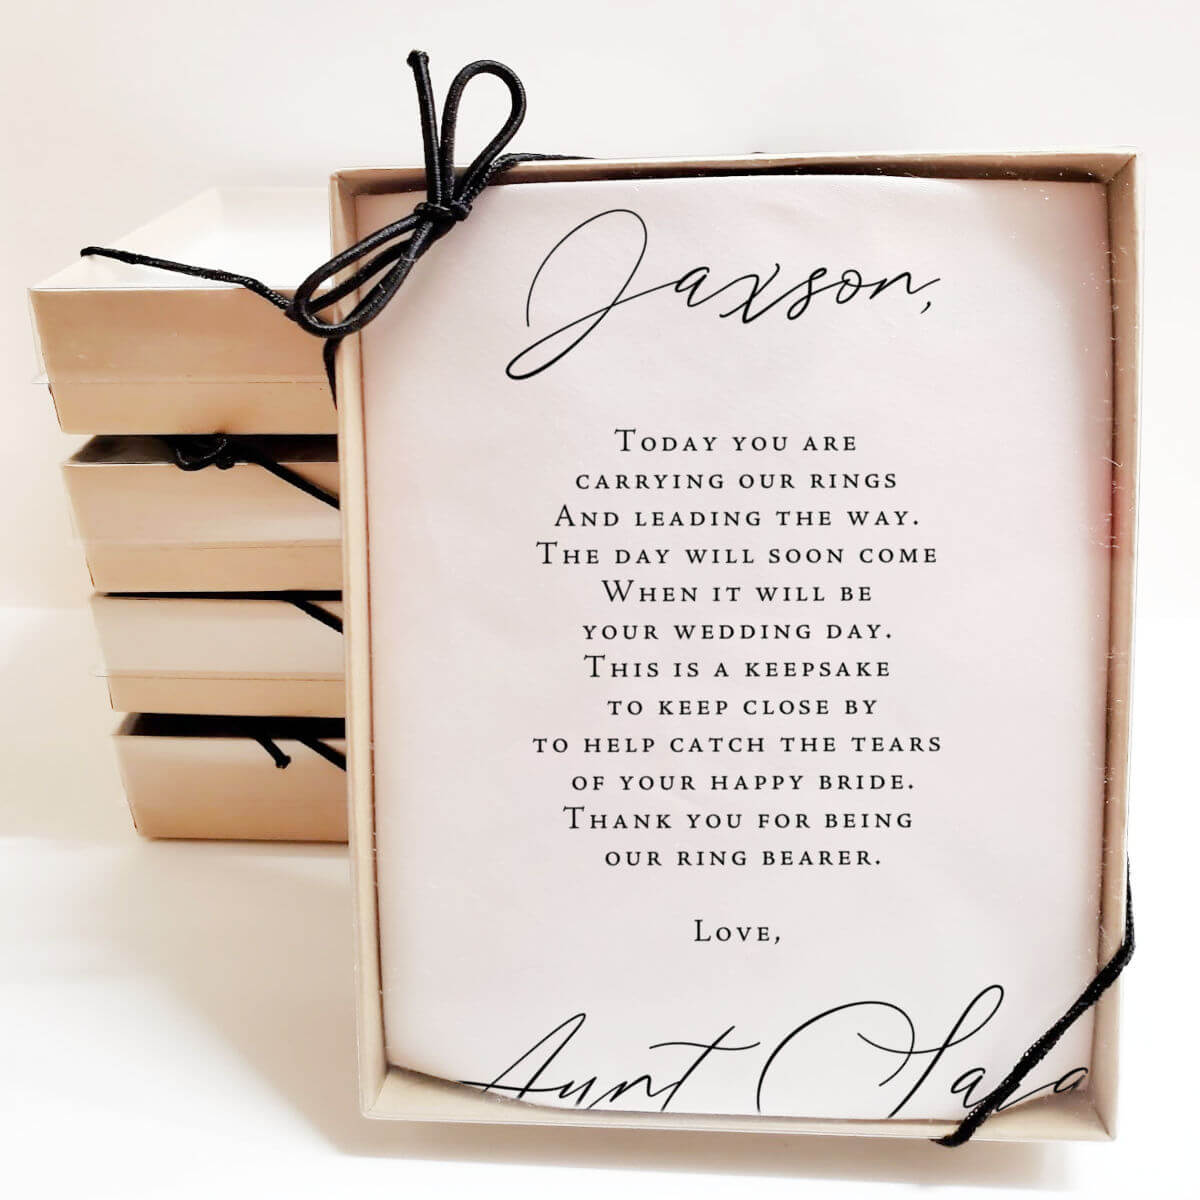 Jaxson,
Today you are
carrying our rings
And leading the way.
The day will soon come
When it will be
your wedding day.
This is a keepsake
to keep close by
to help catch the tears
of your happy bride.
Thank you for being
our ring bearer.
Love,
Aunt Sara